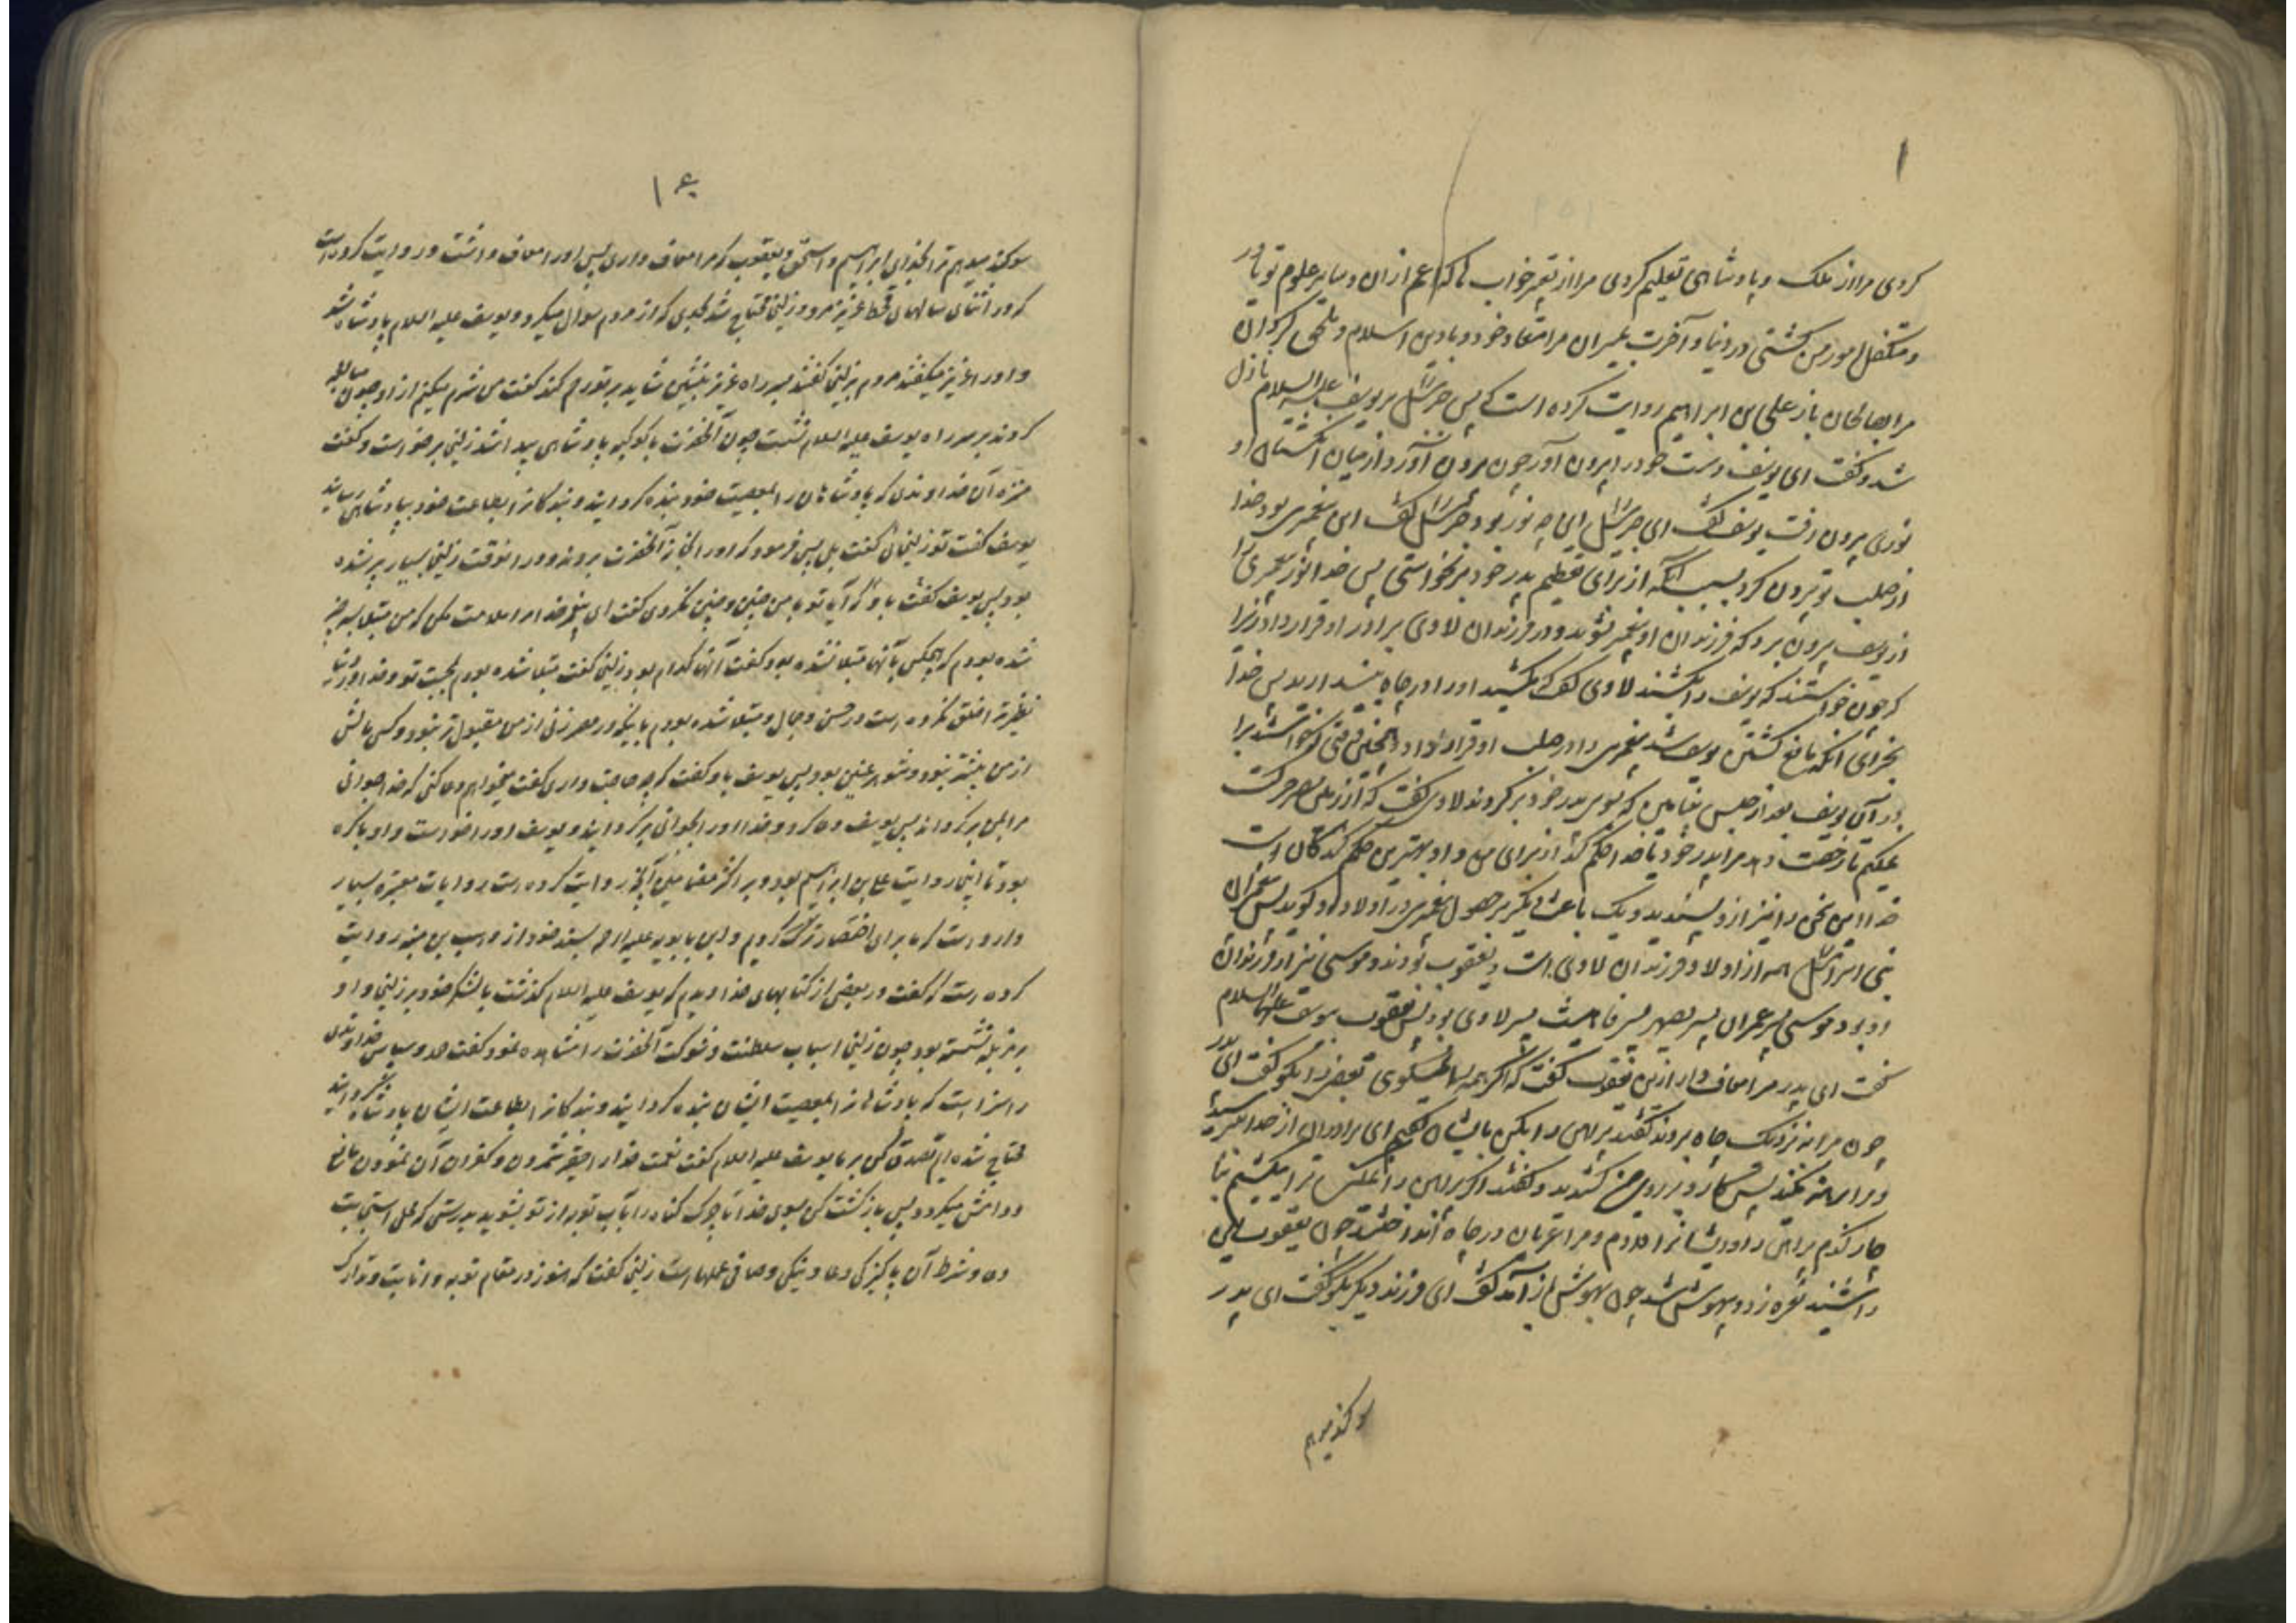 ۱
کردی مرا از ملک و پادشاهی تعلیم کردی مرا از تعبیر خواب که اعم از ان و سایر علوم تو یاور
و متکفل امور من کشتی در دنیا و آخرت بمیران مرا منقاد خود و بادین اسلام و ملحق کردان
مرا بصالحان باز علی بن ابراهیم روایت کرده است که پس جبرئیل بر یوسف علیه السلام نازل
شد و کفت ای یوسف دست خود را بیرون آور چون بیرون آورد از میان انکشتان او
نوری بیرون رفت یوسف کفت ای جبرئیل این چه نور بود جبرئیل کفت این پیغمبری بود خدا
از صلب تو بیرون کرد بسبب آنکه از برای تعظیم پدر خود برنخواستی پس خدا نور پیغمبری را
از یوسف بیرون برد که فرزندان او پیغمبر نشوند و در فرزندان لاوی برادر او قرار داد زیرا
که چون خواستند که یوسف را بکشند لاوی کفت که مکشید او را و در چاه بیندازید پس خدا
بجزای آنکه مانع کشتن یوسف شد پیغمبری را در صلب او قرار داد و همچنین وقتی که خواستند برا
دران یوسف بعد از حبس بنیامین که بسوی پدر خود برکردند لاوی کفت که از زمین مصر حرکت
نمیکنم تا رخصت دهد مرا پدر خود یا خدا حکم کند از برای من و او بهترین حکم کنندکان است
خدا این سخن را نیز از او پسندید و یک باعث دیکر بر حصول پیغمبری در اولاد او کردید پس پیغمبران
بنی اسرائیل همه از اولاد فرزندان لاوی است و یعقوب بودند و موسی نیز از فرزندان
او بود موسی پسر عمران پسر یصهر پسر قاهث پسر لاوی بود پس یعقوب بیوسف علیهما السلام
کفت ای پدر مرا معاف دار ازین یعقوب کفت که اکر همه را نمیکوئی بعضی را بکو کفت ای پدر
چون مرا به نزدیک چاه بردند کفتند پیراهن را بکن بایشان کفتم ای برادران از خدا بترسید
و مرا برهنه مکنید پس کارد بر روی من کشیدند و کفتند اکر پیراهن را نمیکنی ترا میکشیم بنا
چار کندم پیراهن را و بایشان دادم و مرا عریان در چاه انداختند چون یعقوب این
را شنید نعره زد و بیهوش شد چون بهوش باز آمد کفت ای فرزند دیکر بکو کفت ای پدر
سوکند میدهم
سوکند میدهم ترا بخدای ابراهیم و اسحق و یعقوب که مرا معاف داری پس او را معاف داشت و روایت کرده است
که در اثنای سالهای قحط عزیز مرد و زلیخا محتاج شد بحدی که از مردم سوال میکرد و یوسف علیه السلام پادشاه شد
و او را عزیز میکفتند مردم بزلیخا کفتند بسر راه عزیز بنشین شاید بر تو رحم کند کفت من شرم میکنم از او چون مبالغه
کردند بر سر راه یوسف علیه السلام نشست چون آنحضرت با کوکبه پادشاهی پیدا شد زلیخا برخواست و کفت
منزه آن خداوندی که پادشاهان را بمعصیت خود بنده کردانید و بندکان را بطاعت خود بپادشاهی رسانید
یوسف کفت تو زلیخائی کفت بلی پس فرمود که او را بخانه آنحضرت بردند و در انوقت زلیخا بسیار پیر شده
بود پس یوسف کفت باو که آیا تو با من چنین و چنین نکردی کفت ای پیغمبر خدا مرا ملامت مکن که من مبتلا بسه چیز
شده بودم که هیچکس بآنها مبتلا نشده بود کفت آنها کدام بود زلیخا کفت مبتلا شده بودم بمحبت تو و خدا در دنیا
نظیر ترا خلق نکرده است در حسن و جمال و مبتلا شده بودم باینکه در مصر زنی از من مقبول تر نبود و کسی مالش
از من بیشتر نبود و شوهر عنین بود پس یوسف باو کفت که چه حاجت داری کفت میخواهم دعا کنی که خدا جوانی
مرا بمن برکرداند پس یوسف دعا کرد و خدا او را بجوانی برکردانید و یوسف او را خواست و او باکره
بود تا اینجا روایت علی بن ابراهیم بود و بر اکثر مضامین آنچه روایت کرده است روایات معتبره بسیار
وارد است که ما برای اختصار ترک کردیم و ابن بابویه علیه الرحمه بسند خود از وهب بن منبه روایت
کرده است که کفت در بعضی از کتابهای خدا دیدم که یوسف علیه السلام کذشت با لشکر خود بر زلیخا و او
بر مزبله نشسته بود چون زلیخا اسباب سلطنت و شوکت آنحضرت را مشاهده نمود کفت حمد و سپاس خداوندی
را سزا است که پادشاهان را بمعصیت ایشان بنده کردانید و بندکان را بطاعت ایشان پادشاه کردانید
محتاج شده ایم تصدق کن بر ما یوسف علیه السلام کفت نعمت خدا را حقیر شمردن و کفران آن نمودن مانع
دوامش میکردد پس بازکشت کن بسوی خدا تا چرک کناه را بآب توبه از تو بشوید بدرستی که محل استجابت
دعا و شرط آن پاکیزکی دعا و نیکی و صافی عملهاست زلیخا کفت که هنوز در مقام توبه و انابت و تدارک